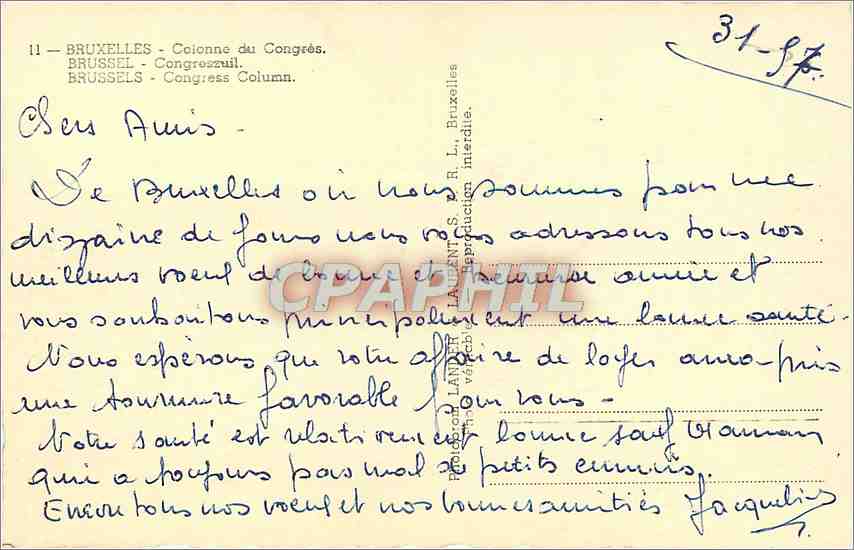 11 — BRUXELLES - Colonne du Congrès.
BRUSSEL - Congreszuil.
BRUSSELS - Congress Column.
31-
Chers Amis -
De Bruxelles où nous sommes pour une
dizaine de jours nous vous adressons tous nos
meilleurs voeux de bonne et heureuse année et
vous souhaitons principalement une bonne santé.
Nous espérons que votre affaire de loyer aura pris
une tournure favorable pour vous -
Notre santé est relativement bonne sauf Maman
qui a toujours pas mal de petits ennuis.
Encore tous nos voeux et nos bonnes amitiés Jacqueline
Photoprom LANDER LAURENT, S. P. R. L., Bruxelles
Photo véritable Reproduction interdite.
CPAPHIL